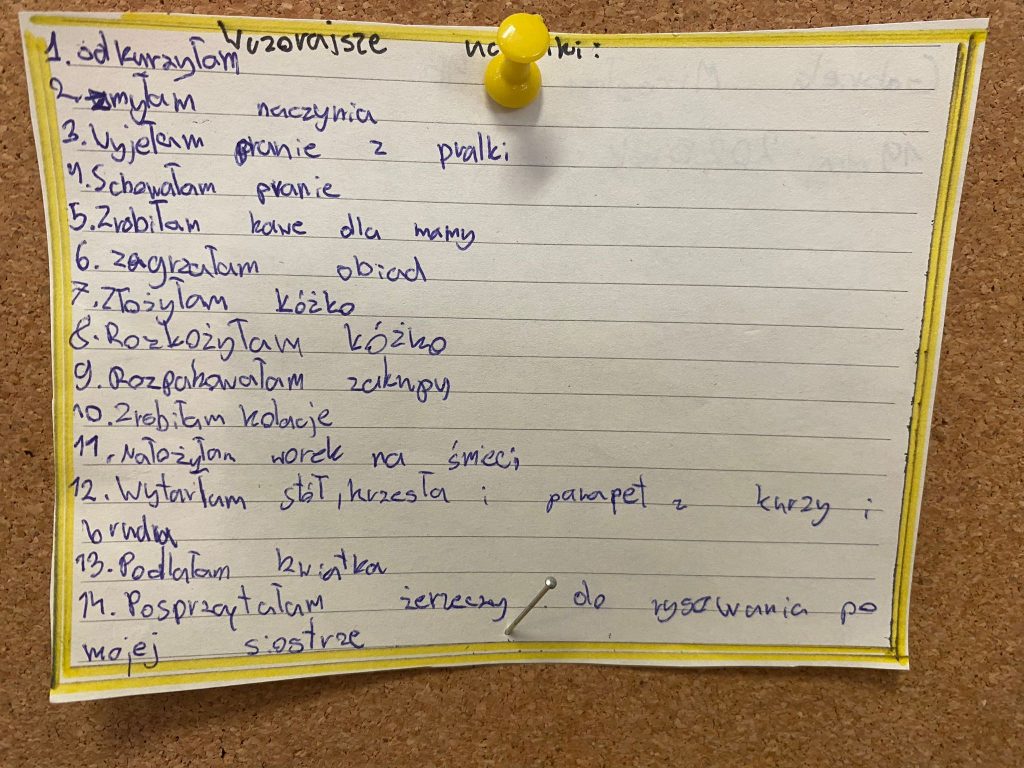 Wczorajsze uczynki:
1. odkurzyłam
2. zmyłam naczynia
3. Wyjełam pranie z pralki
4. Schowałam pranie
5. Zrobiłam kawe dla mamy
6. zagrzałam obiad
7. Złożyłam kóżko
8. Rozkożyłam kóżko
9. Rozpakowałam zakupy
10. Zrobiłam kolacje
11. Nałożyłam worek na śmeci
12. Wytarłam stół, krzesła i parapet z kurzy i
brudu
13. Podlałam kwiatka
14. Posprzątałam żerzeczy do rysowania po
mojej siostrze